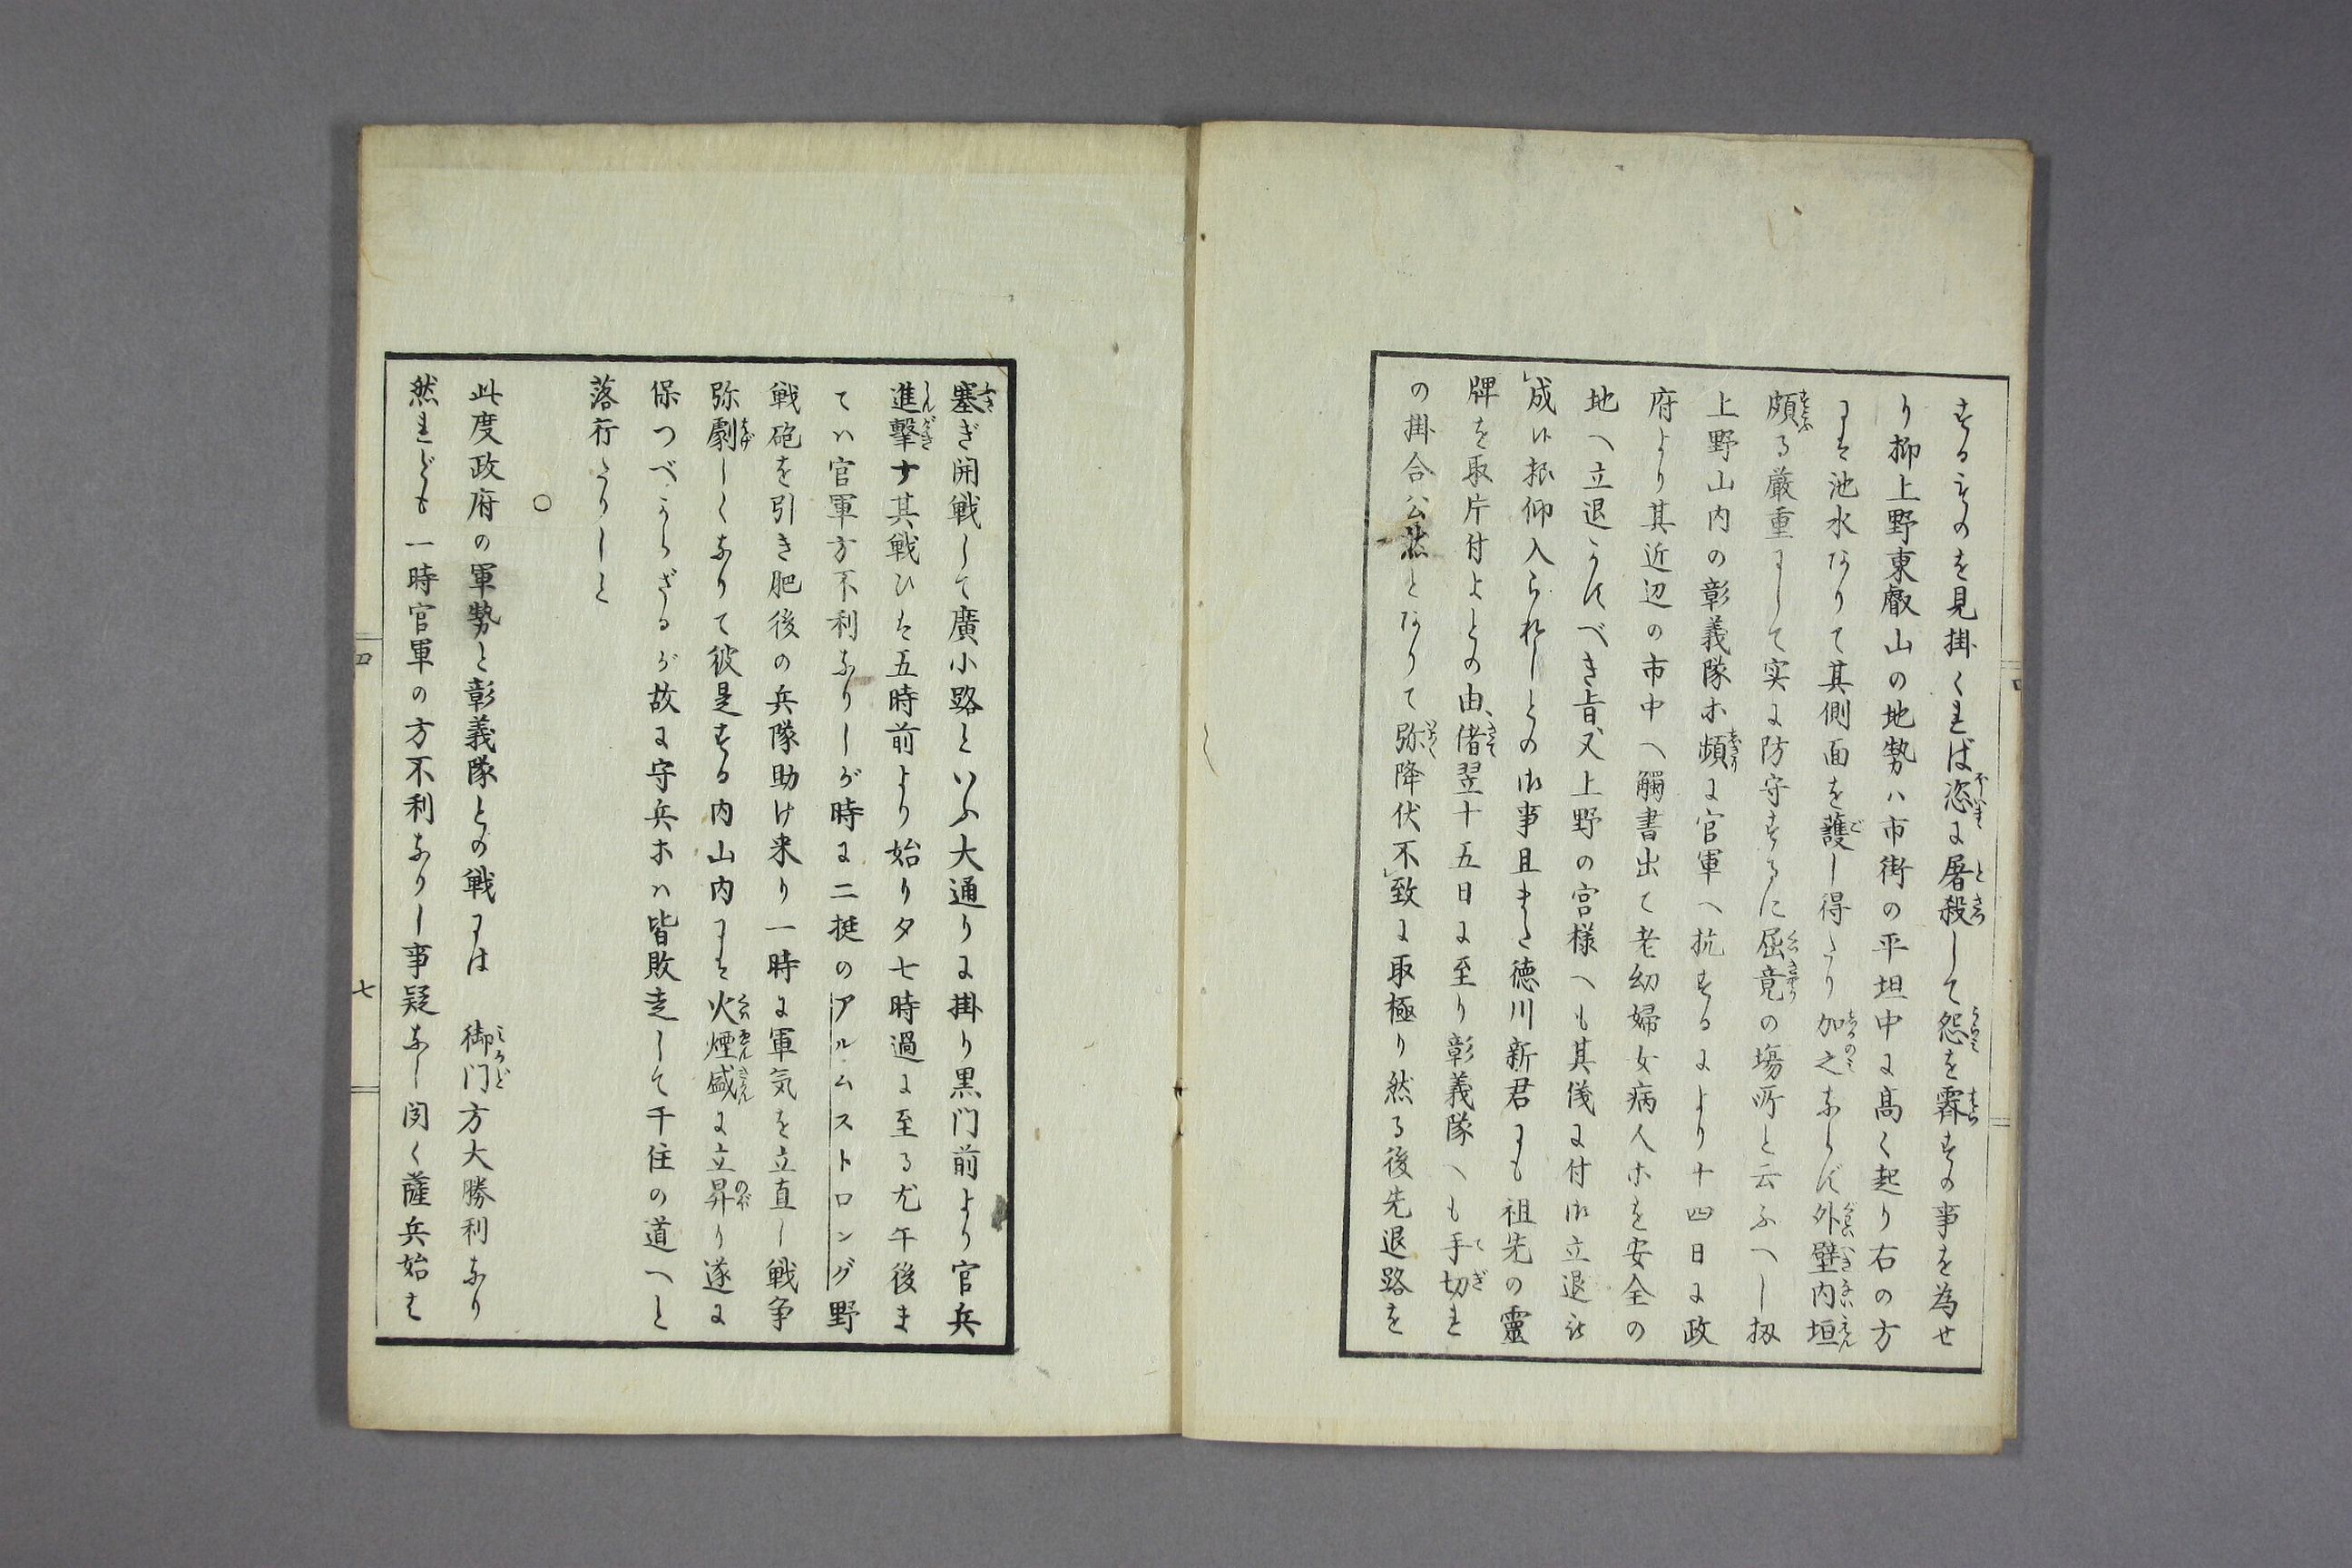 するものを見掛くれば恣に屠殺して怨を霽すの事を為せ
り抑上野東叡山の地勢ハ市街の平坦中に高く起り右の方
には池水ありて其側面を護し得たり加之ならず外壁内垣
頗る厳重にして実に防守するに屈竟の場所と云ふへし扨
上野山内の彰義隊ホ頻に官軍へ抗するにより十四日に政
府より其近辺の市中へ觸書出て老幼婦女病人ホを安全の
地へ立退かすべき旨又上野の宮様へも其儀に付御立退被
成候様仰入られしとの御事且また徳川新君にも祖先の靈
牌を取片付よとの由、偖翌十五日に至り彰義隊へも手切れ
の掛合公然となりて弥降伏不致に取極り然る後先退路を
塞ぎ開戦して廣小路といふ大通りに掛り黒门前より官兵
進擊す其戦ひは五時前より始り夕七時過に至る尤午後ま
てハ官軍方不利なりしが時に二挺のアルムストロング野
戦砲を引き肥後の兵隊助け来り一時に軍気を立直し戦争
弥劇しくなりて彼是する内山内には火煙盛に立昇り遂に
保つべからざるが故に守兵ホハ皆敗走して千住の道へと
落行たりしと
○
此度政府の軍勢と彰義隊との戦には 御门方大勝利なり
然れども一時官軍の方不利なりし事疑なし聞く薩兵始は
四
七